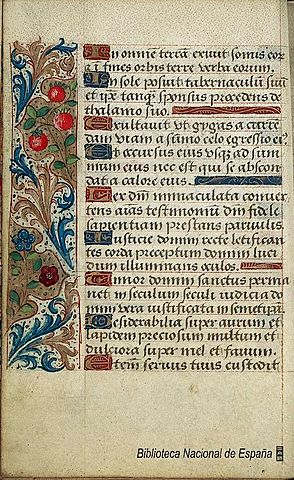 In omnem terrā exivit sonus eor
et i fines orbis terre verba eorum.
In sole posuit tabernaculū suū
et ipe tanqȝ sponsus procedens de
thalamo suo.
Exultavit ut gygas a curre
dam viam a sūmo celo egressio ei9
Et occursus eius usqȝ ad sum
mum eius nec est qui se abscon
dat a calore eius.
Lex dnī immaculata conver
tens aīas testimoniū dnī fidele
sapientiam prestans parvulis
Iusticie domini recte letifican
tes corda preceptum domini luci
dum illuminans oculos.
Timor domini sanctus perma
net in seculum seculi iudicia do
mini vera iustificata in semetipā.
Desiderabilia super aurum et
lapidem preciosum multum et
dulciora super mel et favum.
Etem servus tuus custodit
Biblioteca Nacional de España